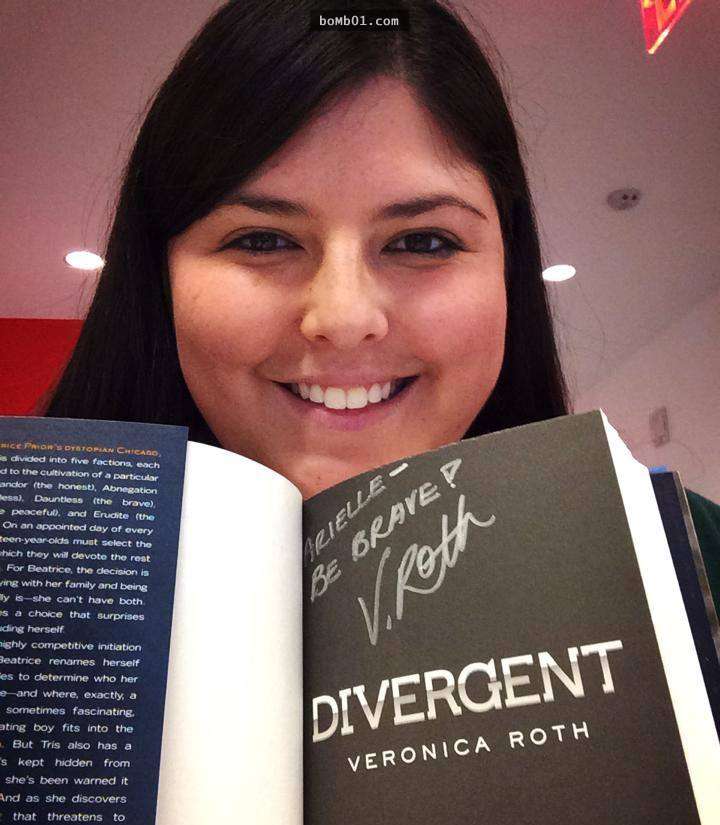 boMb01.com
RICE PRIOR'S DYSTOPIAN CHICAGO,
is divided into five factions, each
d to the cultivation of a particular
andor (the honest), Abnegation
less), Dauntless (the brave),
e peaceful), and Erudite (the
On an appointed day of every
teen-year-olds must select the
hich they will devote the rest
For Beatrice, the decision is
ying with her family and being
lly is—she can't have both.
es a choice that surprises
uding herself.
highly competitive initiation
Beatrice renames herself
les to determine who her
e—and where, exactly, a
sometimes fascinating,
ating boy fits into the
. But Tris also has a
's kept hidden from
she's been warned it
And as she discovers
that threatens to
ARIELLE –
BE BRAVE!
V. Roth
DIVERGENT
VERONICA ROTH